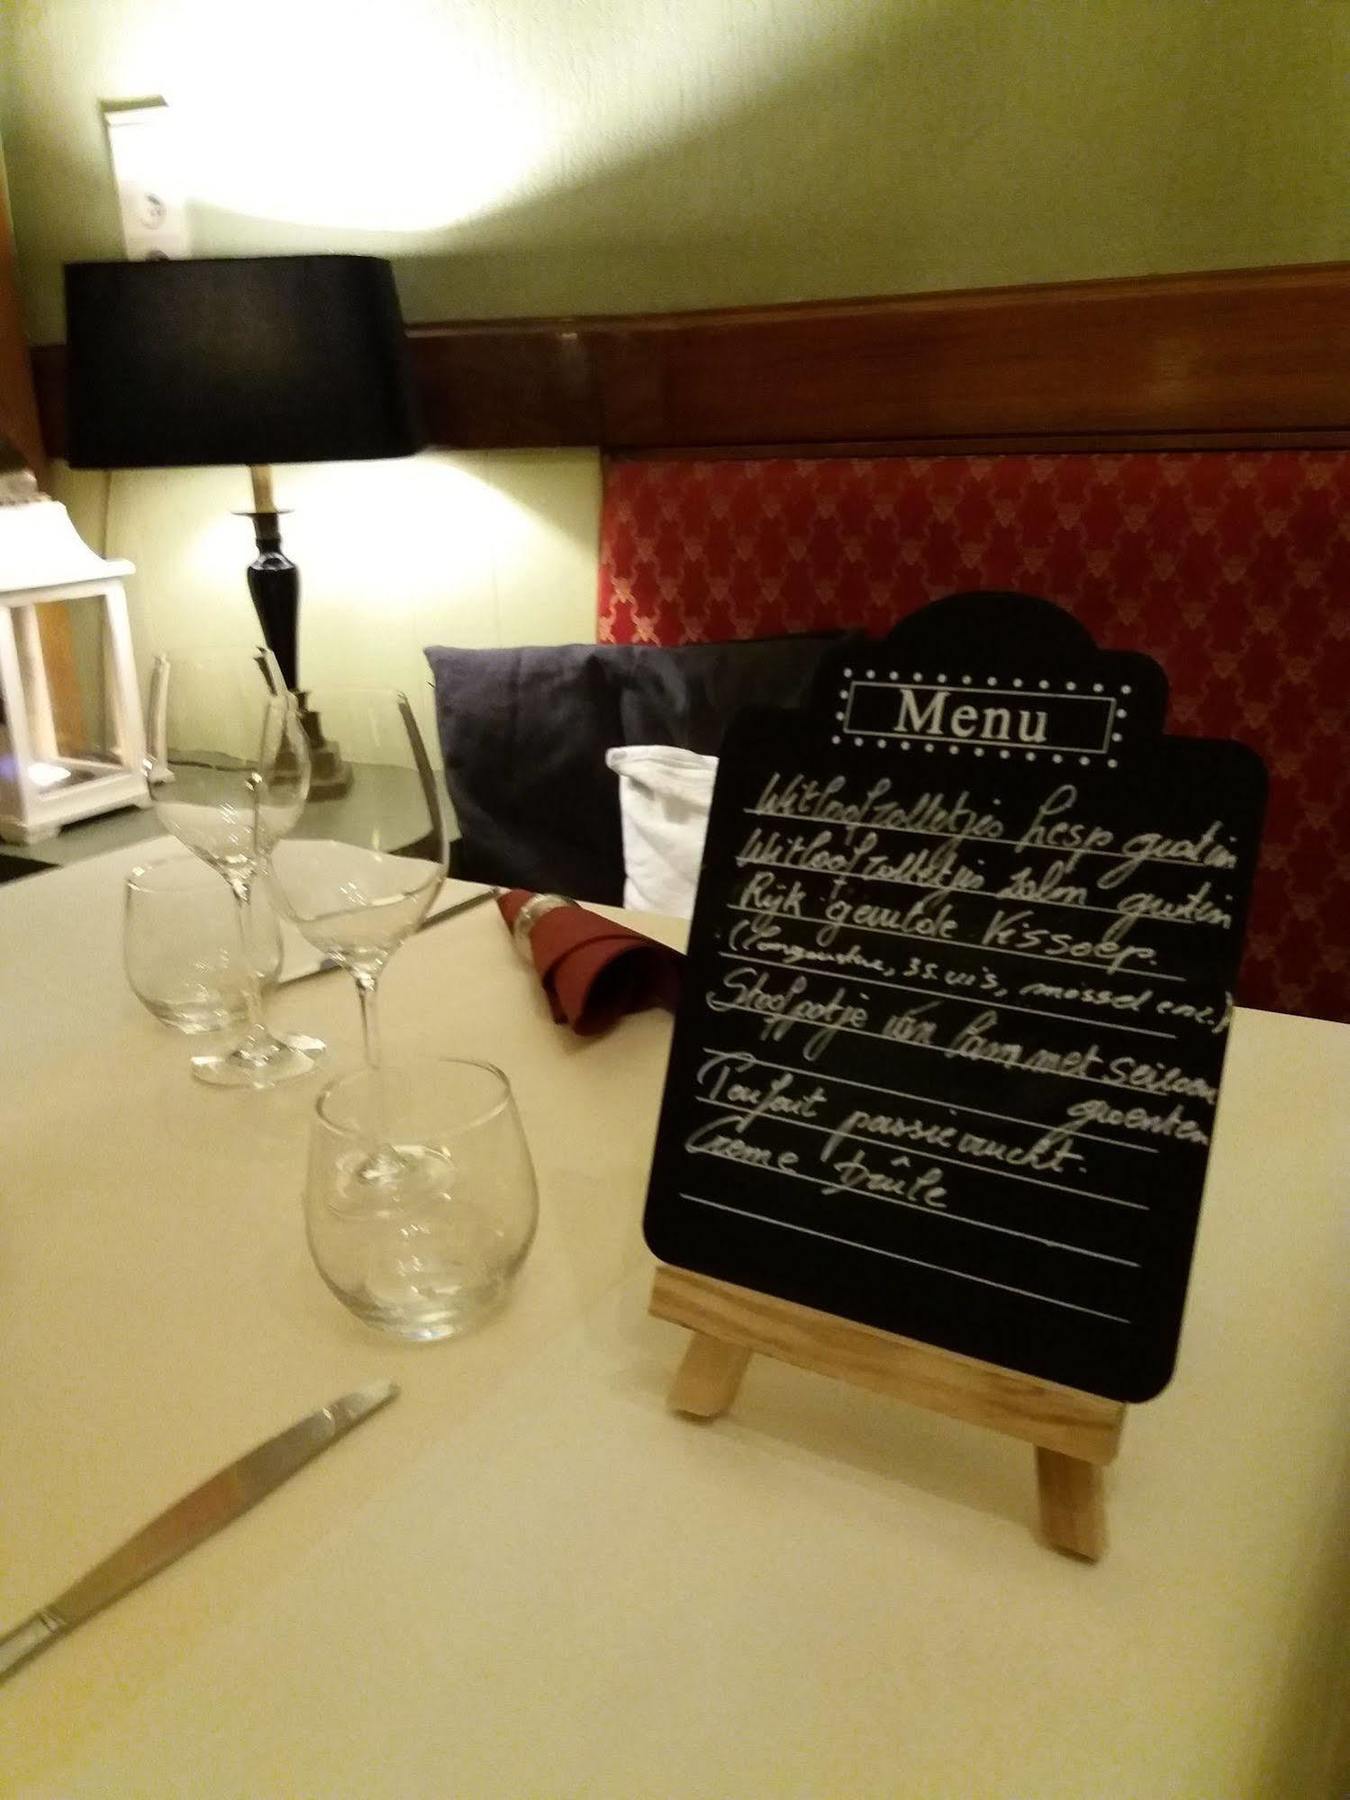 Menu
Witloofrolletjes hesp gratin
Witloofrolletjes zalm gratin
Rijk gevulde Vissoep.
(langoustine, 3s. vis, mossel enz.)
Stoofpotje van lam met seizoen
groenten
Parfait passievrucht.
Creme brûle